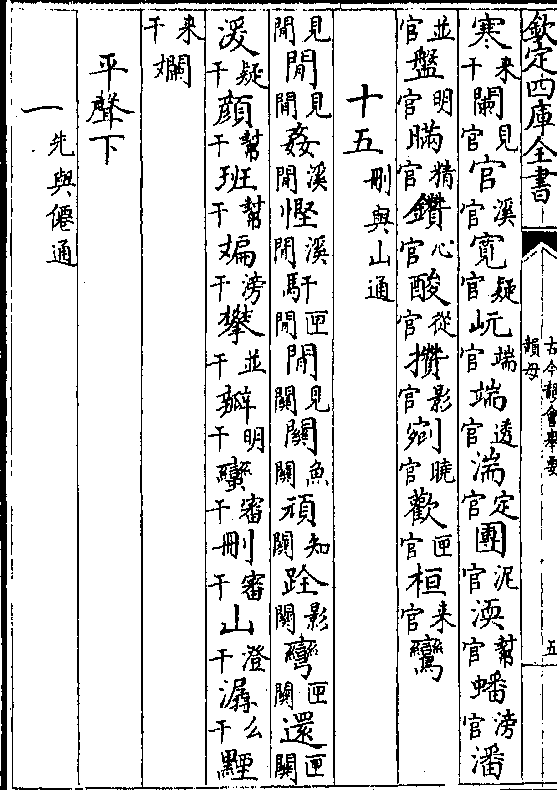 欽定四庫全書
古今韻會舉要
韻母
五
寒來干闌見官官溪官寛疑官岏端官端透官湍定官團泥官渜幫官蟠滂官潘
並官盤明官瞞精官鑽心官酸從官攢影官剜曉官歡匣官桓來官鸞
十五刪與山通
見閒閒見閒姦溪閒慳溪閒馯匣閒閑見關關魚關頑知關跧影關彎匣關還匣關
湲疑干顔幫干班幫干斒滂干攀並干瓣明干蠻審干刪審干山澄干潺么干黫
來干斕
平聲下
一先與僊通